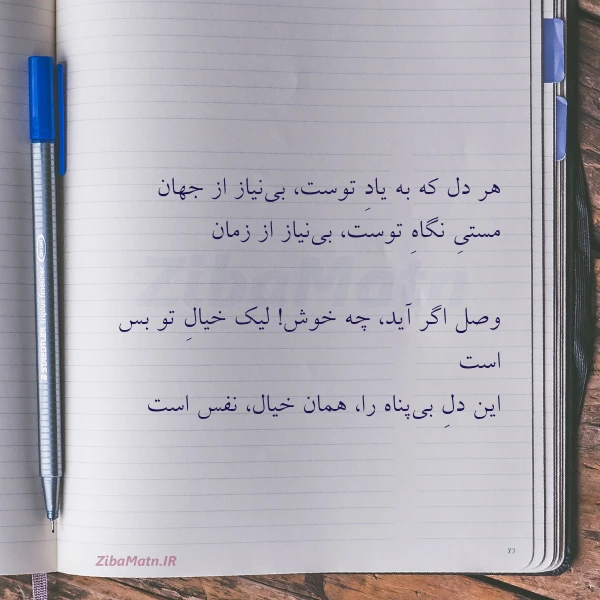 هر دل که به یادِ توست، بی‌نیاز از جهان
مستیِ نگاهِ توست، بی‌نیاز از زمان
وصل اگر آید، چه خوش! لیک خیالِ تو بس
است
این دلِ بی‌پناه را، همان خیال، نفس است
ZibaMatn
ZibaMatn.IR